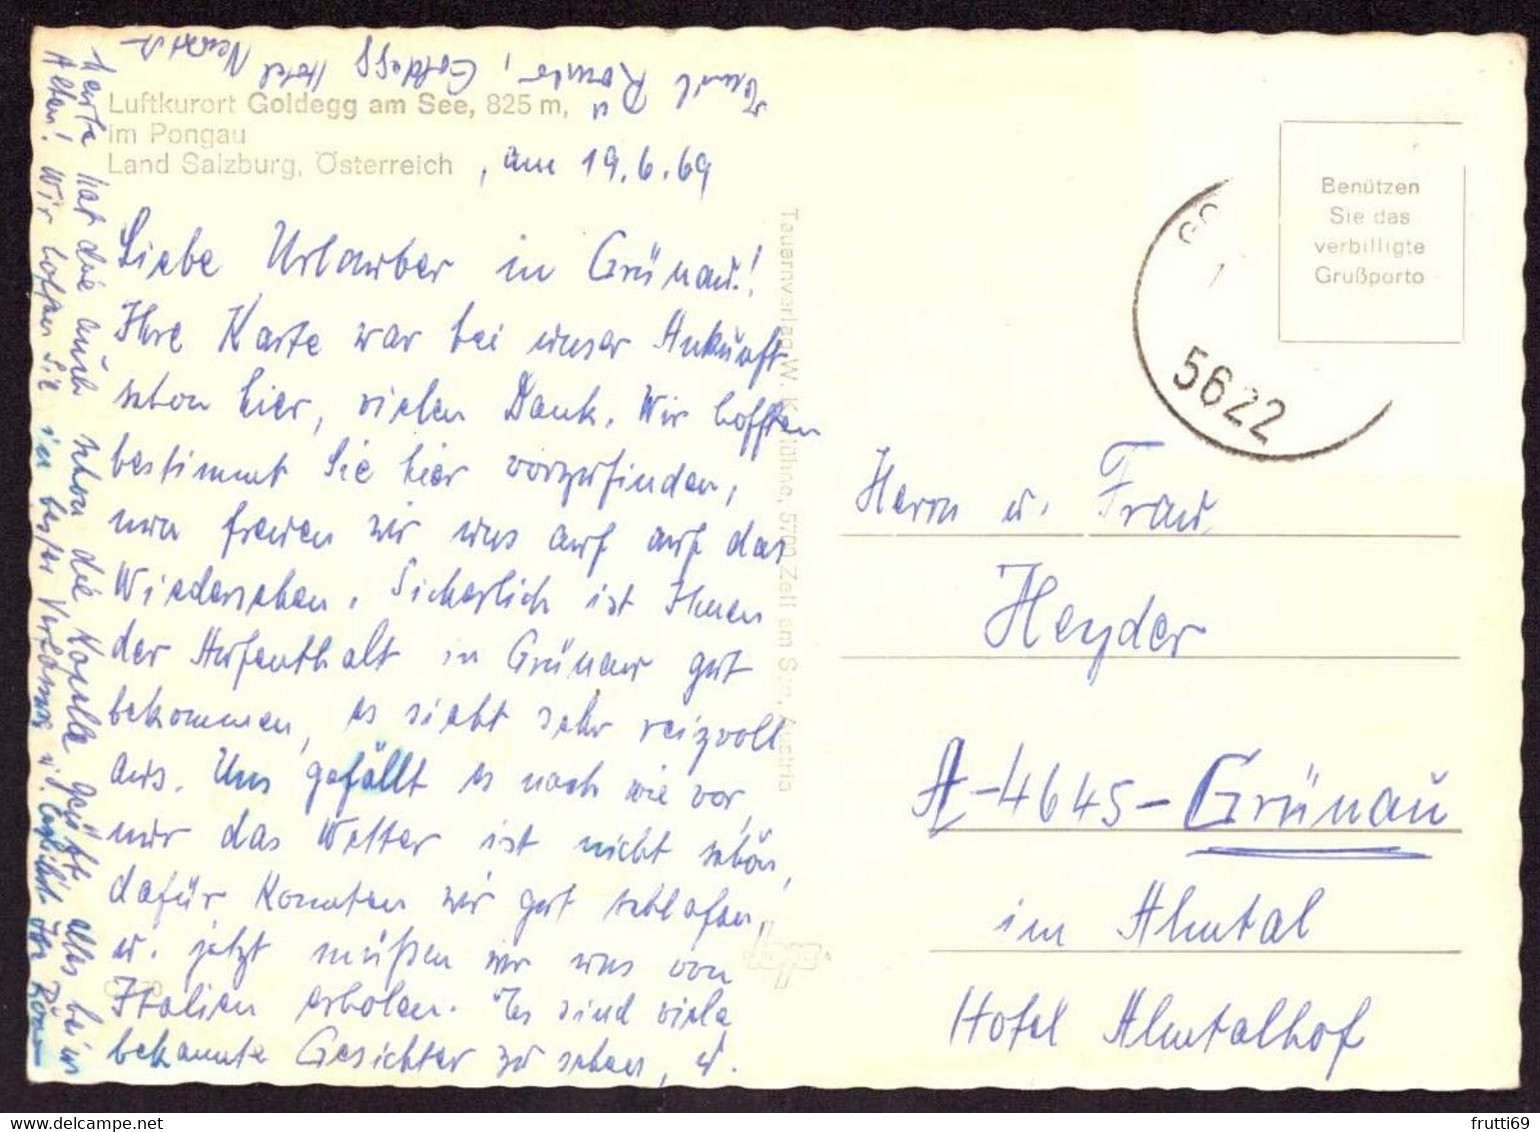 Luftkurort Goldegg am See, 825 m,
im Pongau
Land Salzburg, Österreich
, am 19.6.69
Liebe Urlauber in Grünau!
Ihre Karte war bei unser Ankunft
schon hier, vielen Dank. Wir hofften
bestimmt Sie hier vorzufinden,
nun freuen wir uns auf auf das
Wiedersehen. Sicherlich ist Ihnen
der Aufenthalt in Grünau gut
bekommen, es sieht sehr reizvoll
aus. Uns gefällt es nach wie vor,
nur das Wetter ist nicht schön,
dafür konnten wir gut schlafen,
u. jetzt müßen wir uns von
Italien erholen. Es sind viele
bekannte Gesichter zu sehen, u.
heute hat die auch schon die Kapelle gespielt alles beim
Alten! Wir hoffen Sie in bester
Goldegg Hotel
Tauernverlag W. 5700 Zell am See, Austria
Benützen
Sie das
verbilligte
Grußporto
GO
5622
Herrn u. Frau
Heyder
A-4645-Grünau
im Almtal
Hotel Almtalhof
frutti69